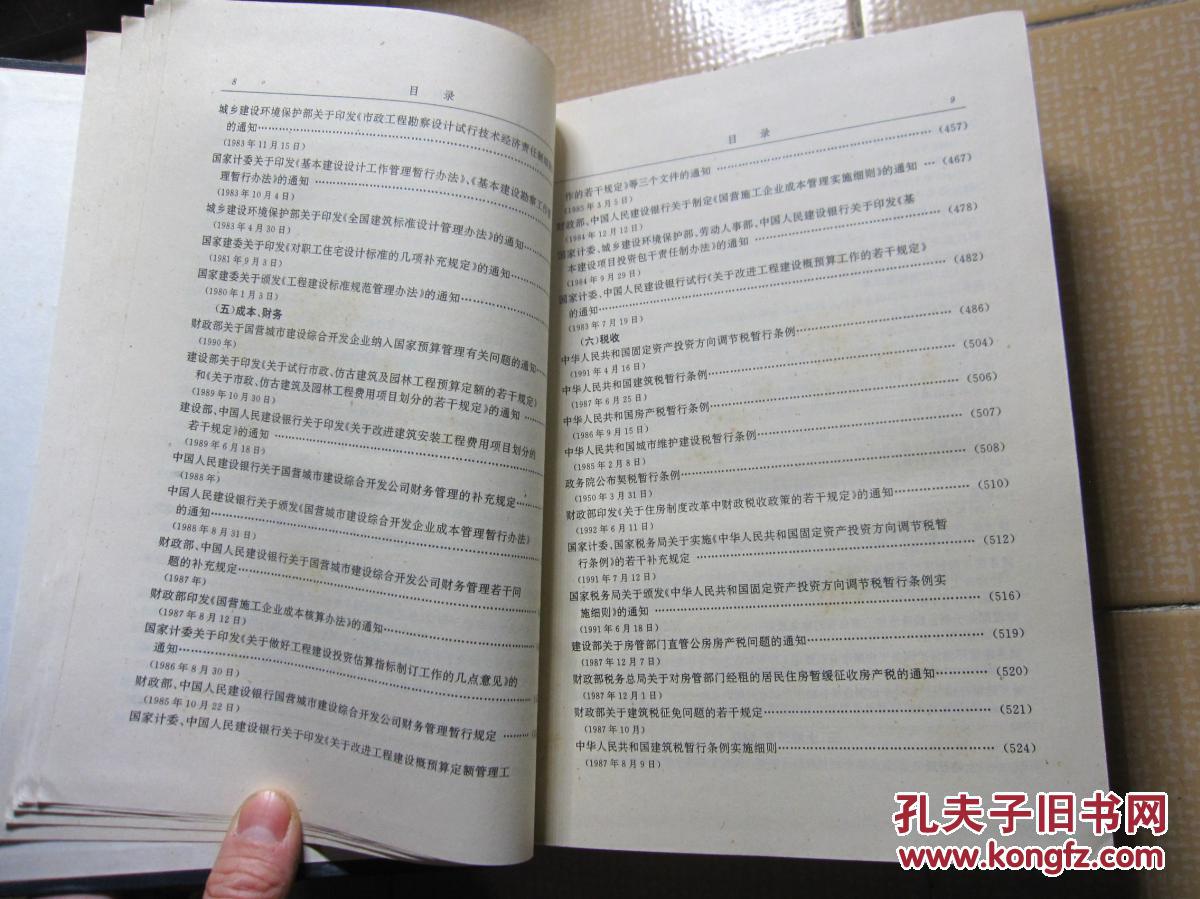 8
目 录
城乡建设环境保护部关于印发《市政工程勘察设计试行技术经济责任制
的通知
(1983年11月15日)
国家计委关于印发《基本建设设计工作管理暂行办法》、《基本建设勘察工作管
理暂行办法》的通知
(1983年10月4日)
城乡建设环境保护部关于印发《全国建筑标准设计管理办法》的通知
(1983年4月30日)
国家建委关于印发《对职工住宅设计标准的几项补充规定》的通知
(1981年9月3日)
国家建委关于颁发《工程建设标准规范管理办法》的通知
(1980年1月3日)
(五)成本、财务
财政部关于国营城市建设综合开发企业纳入国家预算管理有关问题的通知
(1990年)
建设部关于印发《关于试行市政、仿古建筑及园林工程预算定额的若干规定》
和《关于市政、仿古建筑及园林工程费用项目划分的若干规定》的通知
(1989年10月30日)
建设部、中国人民建设银行关于印发《关于改进建筑安装工程费用项目划分的
若干规定》的通知
(1989年6月18日)
中国人民建设银行关于国营城市建设综合开发公司财务管理的补充规定
(1988年)
中国人民建设银行关于颁发《国营城市建设综合开发企业成本管理暂行办法》
的通知
(1988年8月31日)
财政部、中国人民建设银行关于国营城市建设综合开发公司财务管理若干问
题的补充规定
(1987年)
财政部印发《国营施工企业成本核算办法》的通知
(1987年8月12日)
国家计委关于印发《关于做好工程建设投资估算指标制订工作的几点意见》的
通知
(1986年8月30日)
财政部、中国人民建设银行国营城市建设综合开发公司财务管理暂行规定
(1985年10月22日)
国家计委、中国人民建设银行关于印发《关于改进工程建设概预算定额管理工
9
目 录
作的若干规定》等三个文件的通知 (457)
(1985年3月5日)
财政部、中国人民建设银行关于制定《国营施工企业成本管理实施细则》的通知 (467)
(1984年12月12日)
国家计委、城乡建设环境保护部、劳动人事部、中国人民建设银行关于印发《基
本建设项目投资包干责任制办法》的通知 (478)
(1984年9月29日)
国家计委、中国人民建设银行试行《关于改进工程建设概预算工作的若干规定》
的通知 (482)
(1983年7月19日)
(六)税收
中华人民共和国固定资产投资方向调节税暂行条例 (486)
(1991年4月16日)
中华人民共和国建筑税暂行条例 (504)
(1987年6月25日)
中华人民共和国房产税暂行条例 (506)
(1986年9月15日)
中华人民共和国城市维护建设税暂行条例 (507)
(1985年2月8日)
政务院公布契税暂行条例 (508)
(1950年3月31日)
财政部印发《关于住房制度改革中财政税收政策的若干规定》的通知 (510)
(1992年6月11日)
国家计委、国家税务局关于实施《中华人民共和国固定资产投资方向调节税暂
行条例》的若干补充规定 (512)
(1991年7月12日)
国家税务局关于颁发《中华人民共和国固定资产投资方向调节税暂行条例实
施细则》的通知 (516)
(1991年6月18日)
建设部关于房管部门直管公房房产税问题的通知 (519)
(1987年12月7日)
财政部税务总局关于对房管部门经租的居民住房暂缓征收房产税的通知 (520)
(1987年12月1日)
财政部关于建筑税征免问题的若干规定 (521)
(1987年10月)
中华人民共和国建筑税暂行条例实施细则 (524)
(1987年8月9日)
孔夫子旧书网
www.kongfz.com